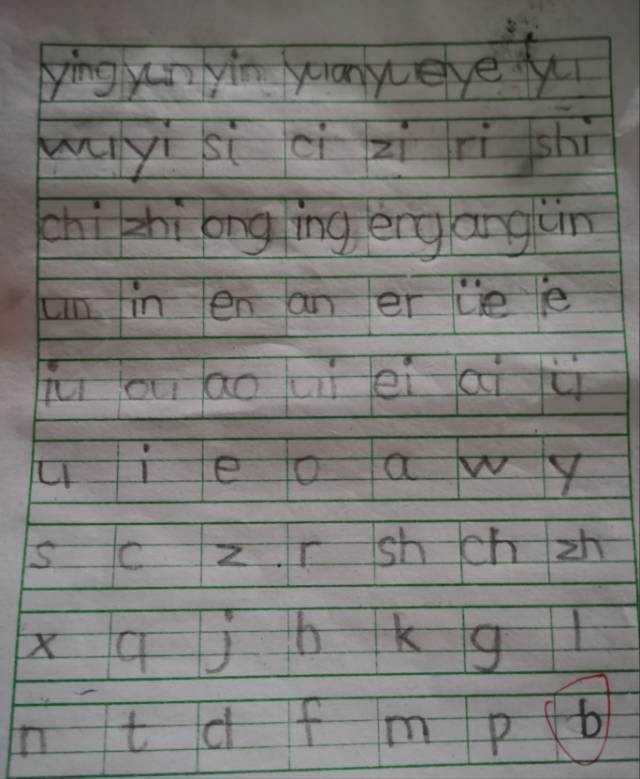 ying yun yin yuan yue ye yu
wu yi si ci zi ri shi
chi zhi ong ing eng ang ün
un in en an er üe ie
iu ou ao ui ei ai ü
u i e o a w y
s c z r sh ch zh
x q j h k g l
n t d f m p b